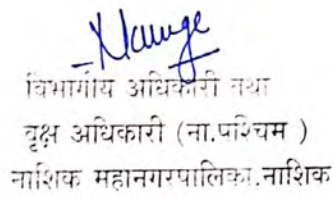 विभागीय अधिकारी तथा
वृक्ष अधिकारी (ना.पश्चिम )
नाशिक महानगरपालिका.नाशिक